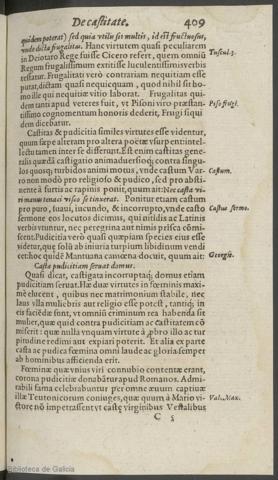 De castitate. 409
quidem poterat) sed quia vtilis sit multis, id est fructuosus,
vnde dicta frugalitas. Hanc virtutem quasi peculiarem
in Deiotaro Rege fuisse Cicero refert, quem omniũ
Regum frugalissimum extitisse luculentissimis verbis
testatur. Frugalitati verò contrariam nequitiam esse
putat, dictam quasi nequicquam, quod nihil sit ho-
mo ille qui nequitiæ vitio laborat. Frugalitas qui-
dem tanti apud veteres fuit, vt Pisoni viro præstan-
tissimo cognomentum honoris dederit, Frugi si qui
dem dicebatur.
Castitas & pudicitia similes virtutes esse videntur,
quum sæpe alteram pro altera poëtæ vsurpent: intel-
lectu tamen inter se differunt. Est enim castitas gene-
ralis quædã castigatio animaduersioq; contra singu-
los quosq; turbidos animi motus, vnde castum Var-
ro non modò pro religioso & pudico, sed pro absti-
nente à furtis ac rapinis ponit, quum ait: Nec casta vi-
ri manu tenaci visco se tinuerat. Ponitur etiam castum
pro puro, suaui, iucundo, & incorrupto, vnde casto
sermone eos locutos dicimus, qui nitidis ac Latinis
verbis vtuntur, nec peregrina aut nimis prisca cõmi-
scent. Pudicitia verò quasi quæpiam species eius esse
videtur, que solũ ab iniuria turpium libidinum vendi
cet: hoc quidẽ Mantuana camœna docuit, quum ait:
Casta pudicitiam seruat domus.
Quasi dicat, castigata incorruptaq; domus etiam
pudicitiam seruat. Hæ duæ virtutes in fœminis maxi-
mè elucent, quibus nec matrimonium stabile, nec
laus vlla muliebris aut religio esse potest, tantiq; in
eis faciẽdæ sunt, vt omniũ criminum rea habenda sit
mulier, quæ quid contra pudicitiam ac castitatem cõ
miserit: quæ nulla vnquam virtute à probro illo ac tur
pitudine redimi aut expiari poterit. Et alia ex parte
casta ac pudica fœmina omni laude ac gloria semper
ab hominibus afficienda erit.
Fœminæ quæ vnius viri connubio contentæ erant,
corona pudicitiæ donabãtur apud Romanos. Admi-
rabili fama celebrabuntur per omne æuum captiuæ
illæ Teutonicorum coniuges, quæ quum à Mario vi-
ctore nõ impetrassent vt castę virginibus Vestalibus
Tuscul. 3.
Piso frugi.
Castum.
Castus sermo.
Georgic.
Val. Max.
Biblioteca de Galicia